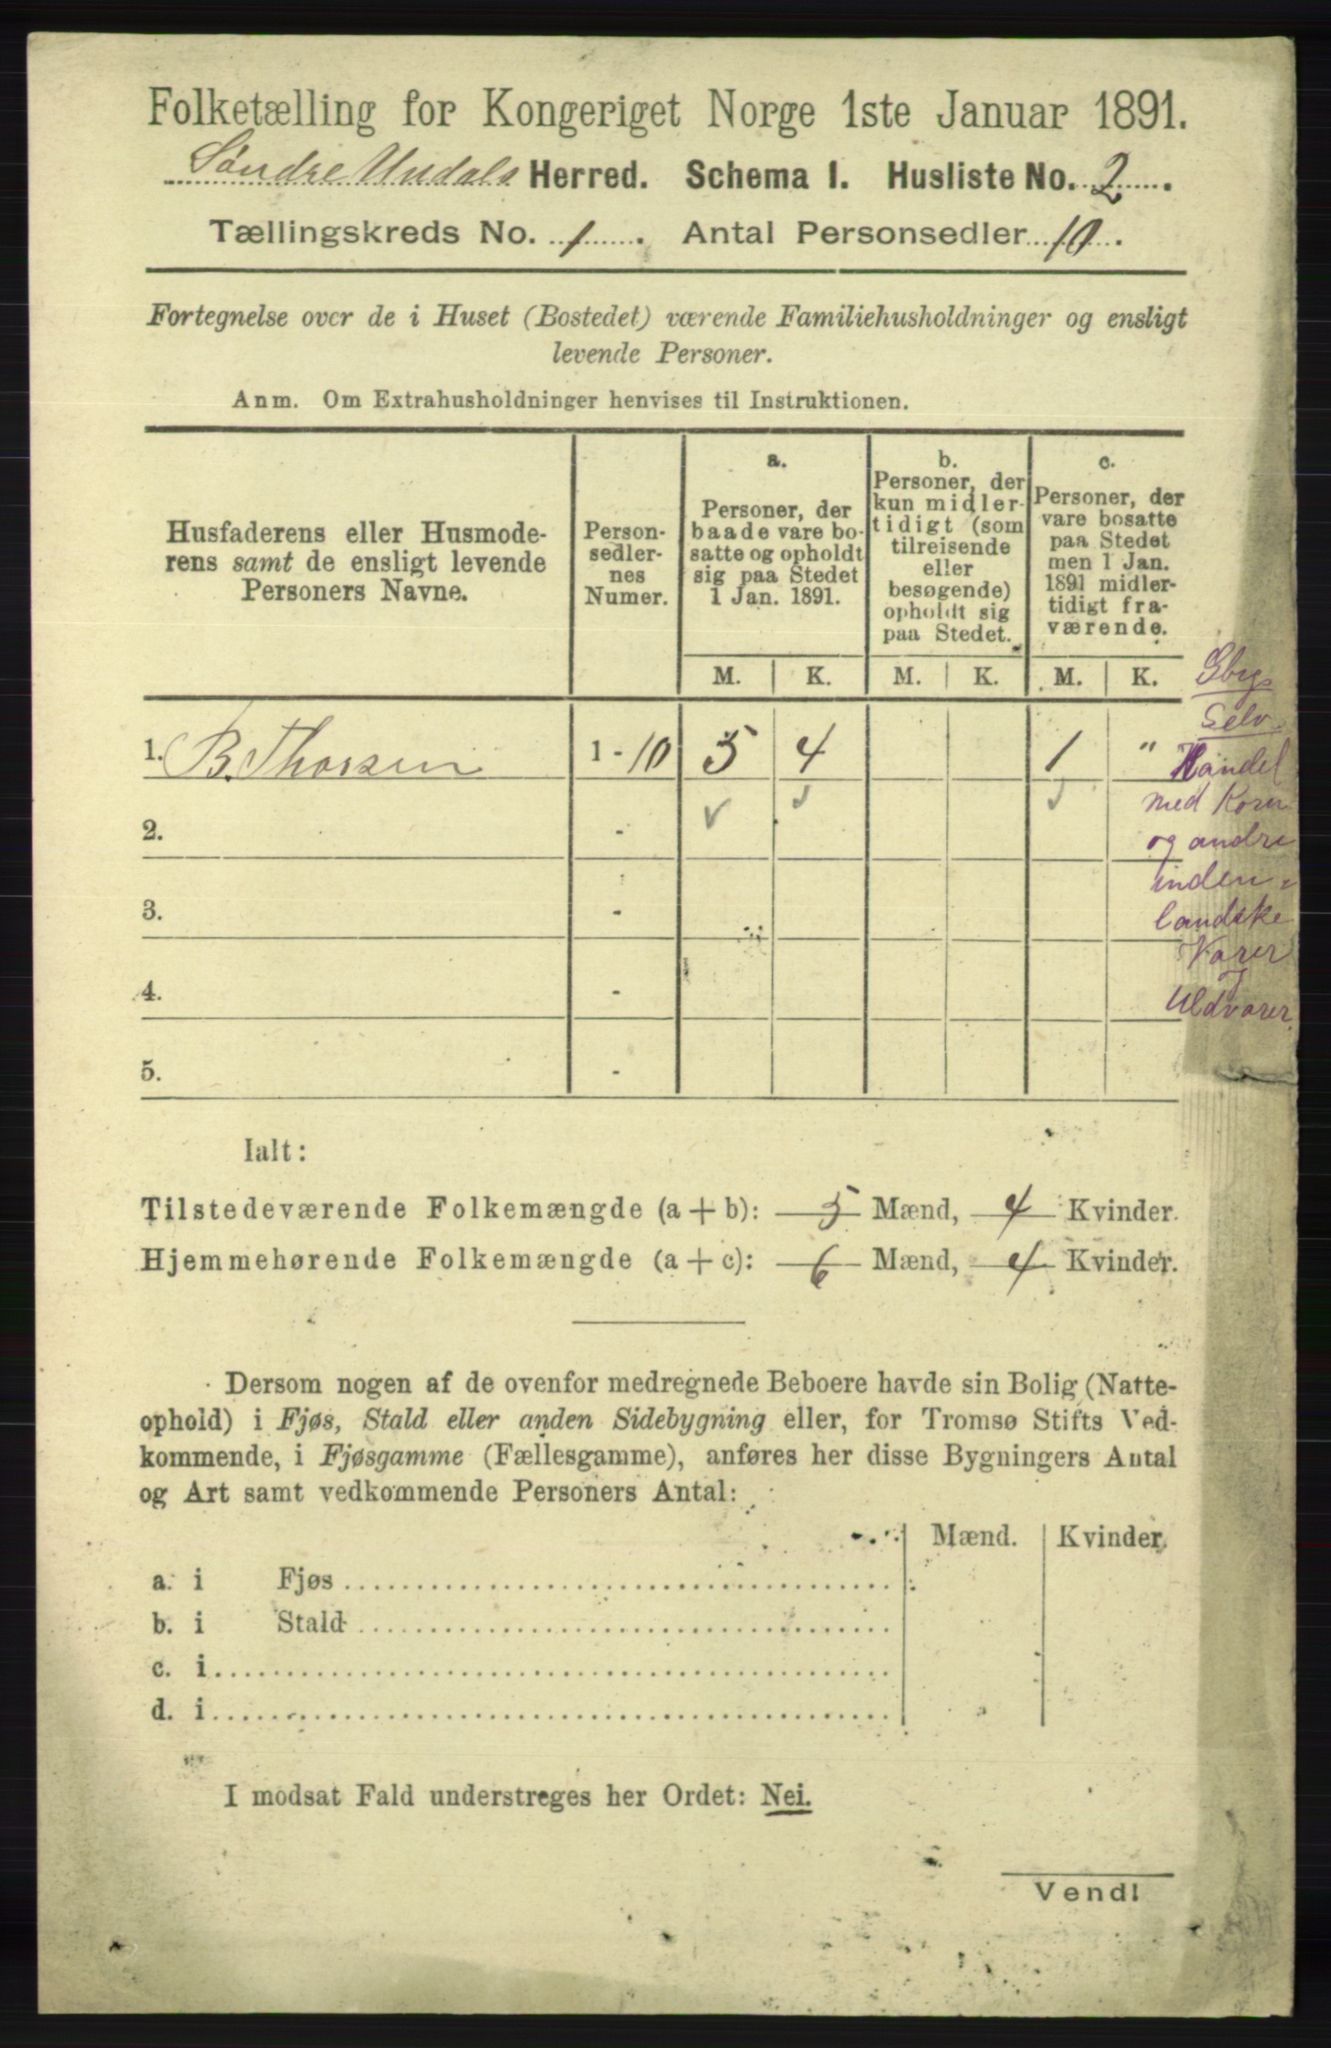 Folketælling for Kongeriget Norge 1ste Januar 1891.
Søndre Undals Herred. Schema I. Husliste No. 2
Tællingskreds No. 1. Antal Personsedler 10.
Fortegnelse over de i Huset (Bostedet) værende Familiehusholdninger og ensligt
levende Personer.
Anm. Om Extrahusholdninger henvises til Instruktionen.
Husfaderens eller Husmode-
rens samt de ensligt levende
Personers Navne.
Person-
sedler-
nes
Numer.
a.
Personer, der
baade vare bo-
satte og opholdt
sig paa Stedet
1 Jan. 1891.
b.
Personer, der
kun midler-
tidigt (som
tilreisende
eller
besøgende)
opholdt sig
paa Stedet.
c.
Personer, der
vare bosatte
paa Stedet
men 1 Jan.
1891 midler-
tidigt fra-
værende.
M. K. M. K. M. K.
1. B. Thorsen 1 - 10 5 4 1 "
2. -
3. -
4. -
5. -
Gbr.
Selv.
Handel
med Korn
og andre
inden-
landske
Varer
og
Uldvarer.
Ialt:
Tilstedeværende Folkemængde (a + b): 5 Mænd, 4 Kvinder.
Hjemmehørende Folkemængde (a + c): 6 Mænd, 4 Kvinder.
Dersom nogen af de ovenfor medregnede Beboere havde sin Bolig (Natte-
ophold) i Fjøs, Stald eller anden Sidebygning eller, for Tromsø Stifts Ved-
kommende, i Fjøsgamme (Fællesgamme), anføres her disse Bygningers Antal
og Art samt vedkommende Personers Antal:
Mænd. Kvinder.
a. i Fjøs
b. i Stald
c. i
d. i
I modsat Fald understreges her Ordet: Nei.
Vend!